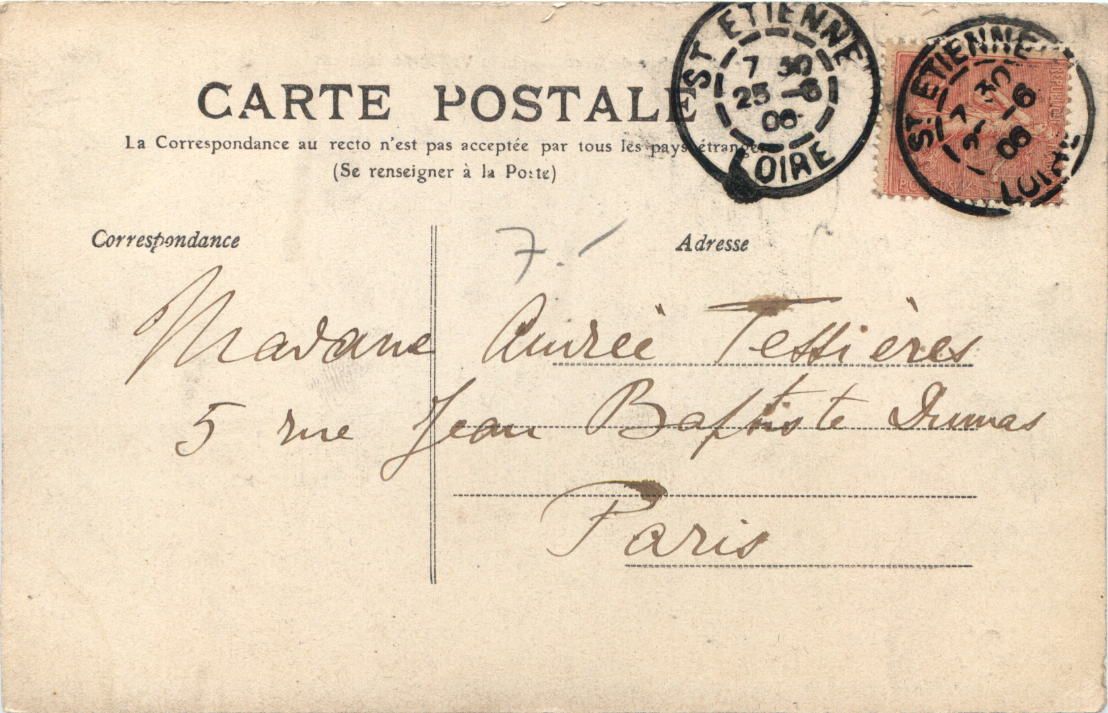 CARTE POSTALE
La Correspondance au recto n'est pas acceptée par tous les pays étrangers
(Se renseigner à la Poste)
ST ETIENNE
7 30
25 -6
06
LOIRE
ST ETIENNE
7 30
25 -6
06
LOIRE
Correspondance
7.-
Adresse
Madame Andrée Tessières
5 rue Jean Baptiste Dumas
Paris